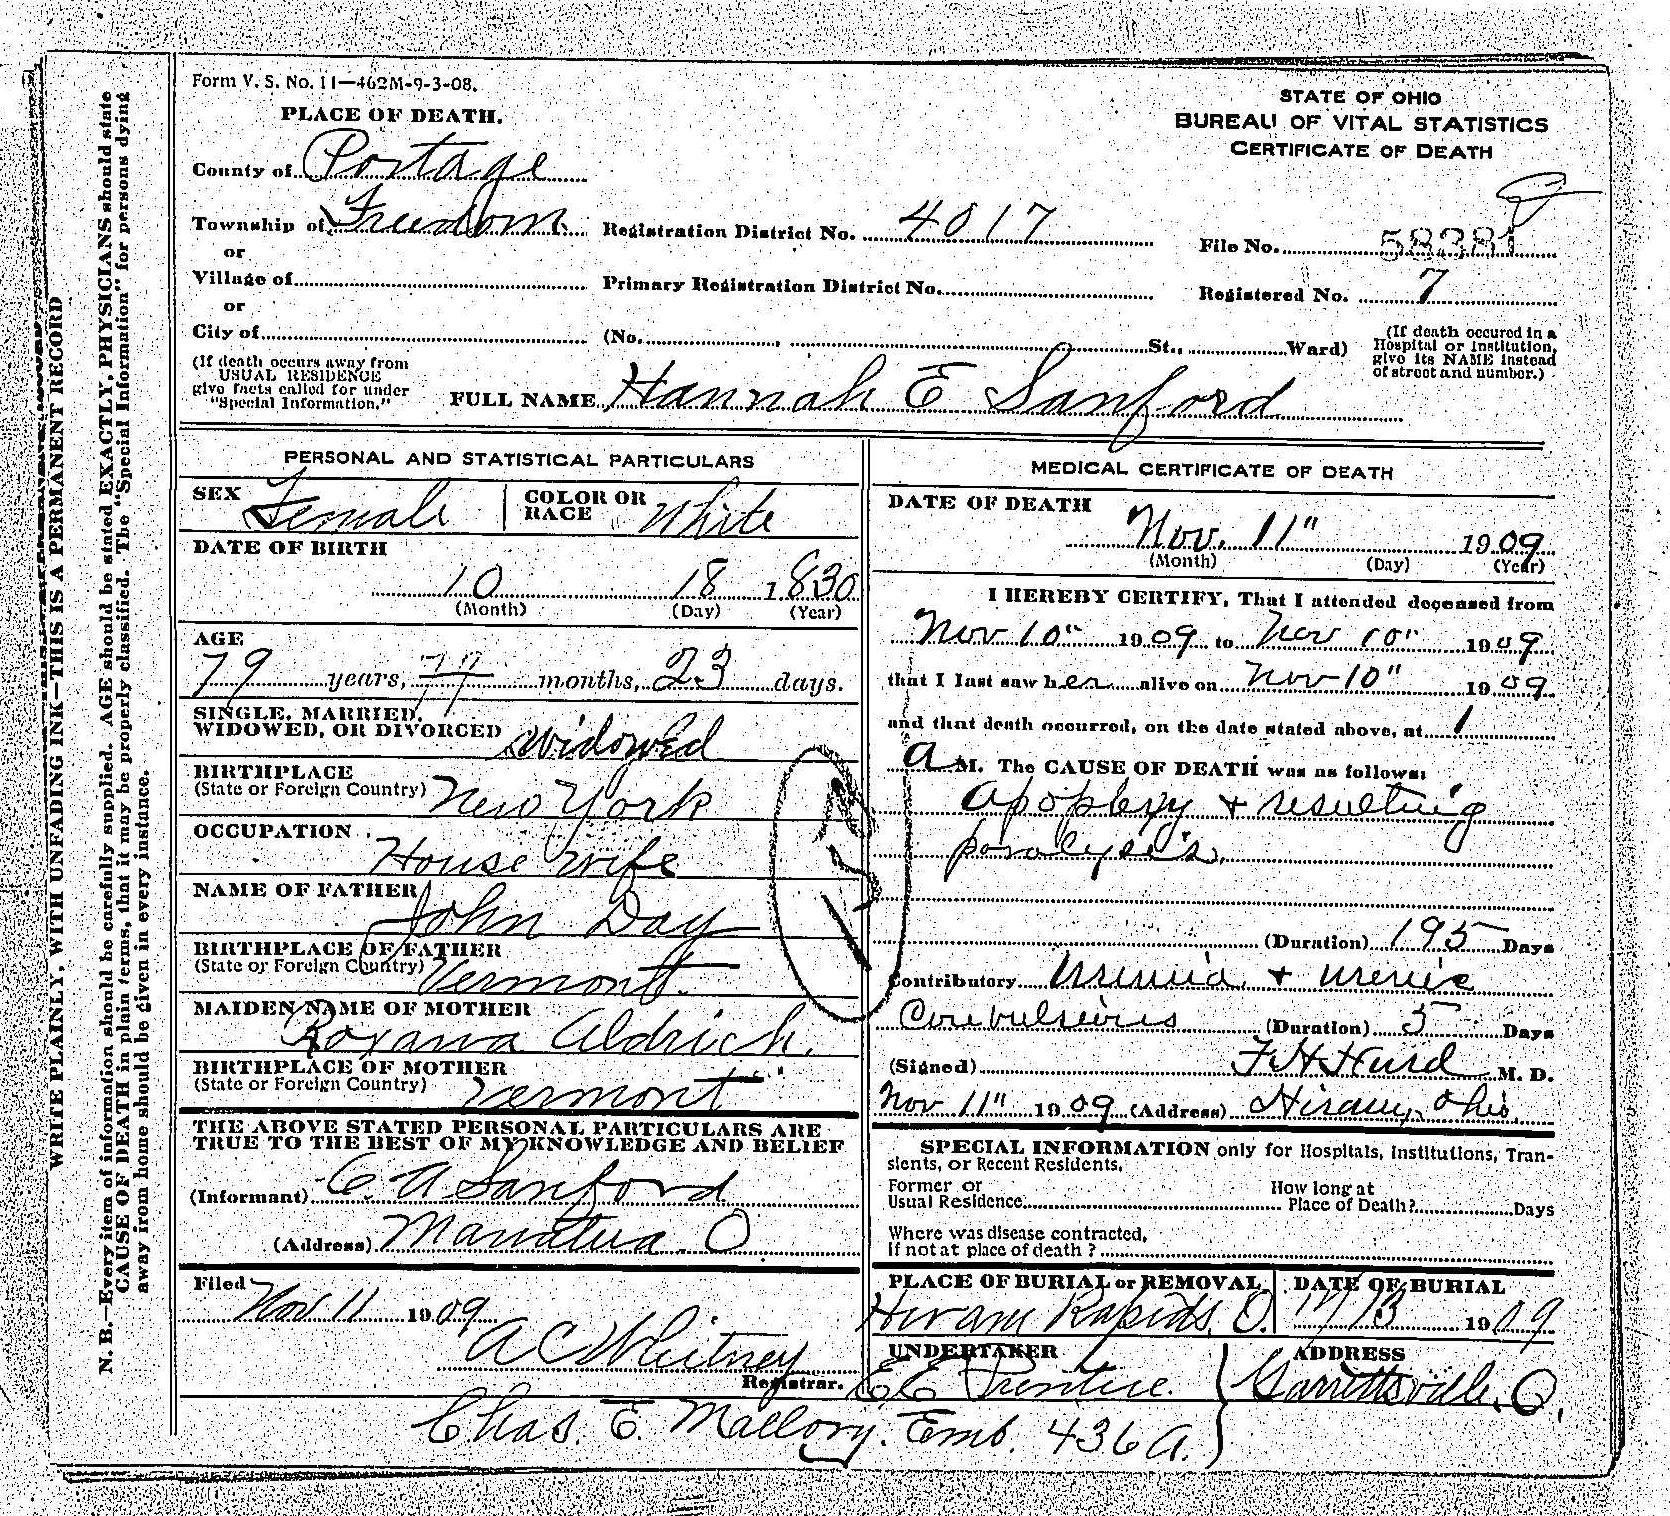 Form V. S. No. 11—462M-9-3-08.
PLACE OF DEATH.
STATE OF OHIO
BUREAU OF VITAL STATISTICS
CERTIFICATE OF DEATH
County of Portage
Township of Freedom Registration District No. 4017 File No. 58381
or
Village of Primary Registration District No. Registered No. 7
or
City of (No. , St., Ward) (If death occured in a Hospital or Institution, give its NAME instead of street and number.)
(If death occurs away from USUAL RESIDENCE give facts called for under "Special Information."
FULL NAME Hannah E Sanford
PERSONAL AND STATISTICAL PARTICULARS
SEX Female COLOR OR RACE White
DATE OF BIRTH
10 18 1830
(Month) (Day) (Year)
AGE
79 years, months, 23 days.
SINGLE, MARRIED, WIDOWED, OR DIVORCED widowed
BIRTHPLACE
(State or Foreign Country) New York
OCCUPATION House wife
NAME OF FATHER John Day
BIRTHPLACE OF FATHER
(State or Foreign Country) Vermont
MAIDEN NAME OF MOTHER
Roxana Aldrich.
BIRTHPLACE OF MOTHER
(State or Foreign Country) Vermont
THE ABOVE STATED PERSONAL PARTICULARS ARE
TRUE TO THE BEST OF MY KNOWLEDGE AND BELIEF
(Informant) C. A Sanford
(Address) Mantua O
Filed Nov 11 1909
A C Whitney
Registrar.
MEDICAL CERTIFICATE OF DEATH
DATE OF DEATH
Nov. 11" 1909
(Month) (Day) (Year)
I HEREBY CERTIFY, That I attended deceased from
Nov 10" 1909 to Nov 10" 1909
that I last saw her alive on Nov 10" 1909
and that death occurred, on the date stated above, at 1
A M. The CAUSE OF DEATH was as follows:
Apoplexy + resulting
paralysis.
(Duration) 195 Days
Contributory Uremia + uremic
Convulsions (Duration) 5 Days
(Signed) F H Hurd M. D.
Nov 11" 1909 (Address) Hiram, Ohio.
SPECIAL INFORMATION only for Hospitals, Institutions, Tran-
sients, or Recent Residents.
Former or Usual Residence How long at Place of Death? Days
Where was disease contracted,
If not at place of death ?
PLACE OF BURIAL or REMOVAL DATE OF BURIAL
Hiram Rapids. O. 11/13 1909
UNDERTAKER ADDRESS
E E Prentice. Garrettsville. O.
Chas. E. Mallory. Emb. 436 A.
WRITE PLAINLY, WITH UNFADING INK—THIS IS A PERMANENT RECORD
N. B.—Every item of information should be carefully supplied. AGE should be stated EXACTLY, PHYSICIANS should state
CAUSE OF DEATH in plain terms, that it may be properly classified. The "Special Information" for persons dying
away from home should be given in every instance.